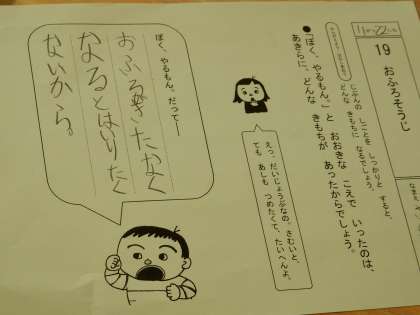 11がつ22にち
19 おふろそうじ
じぶんの しごとを しっかりと すると、
どんな きもちに なるでしょう。
●「ぼく、やるもん。」と おおきな こえで いったのは、
あきらに、どんな きもちが あったからでしょう。
えっ、だいじょうぶなの。さむいと、
ても あしも つめたくて、たいへんよ。
ぼく、やるもん。だって―
おふろ
なるとはいりたく
ないから。